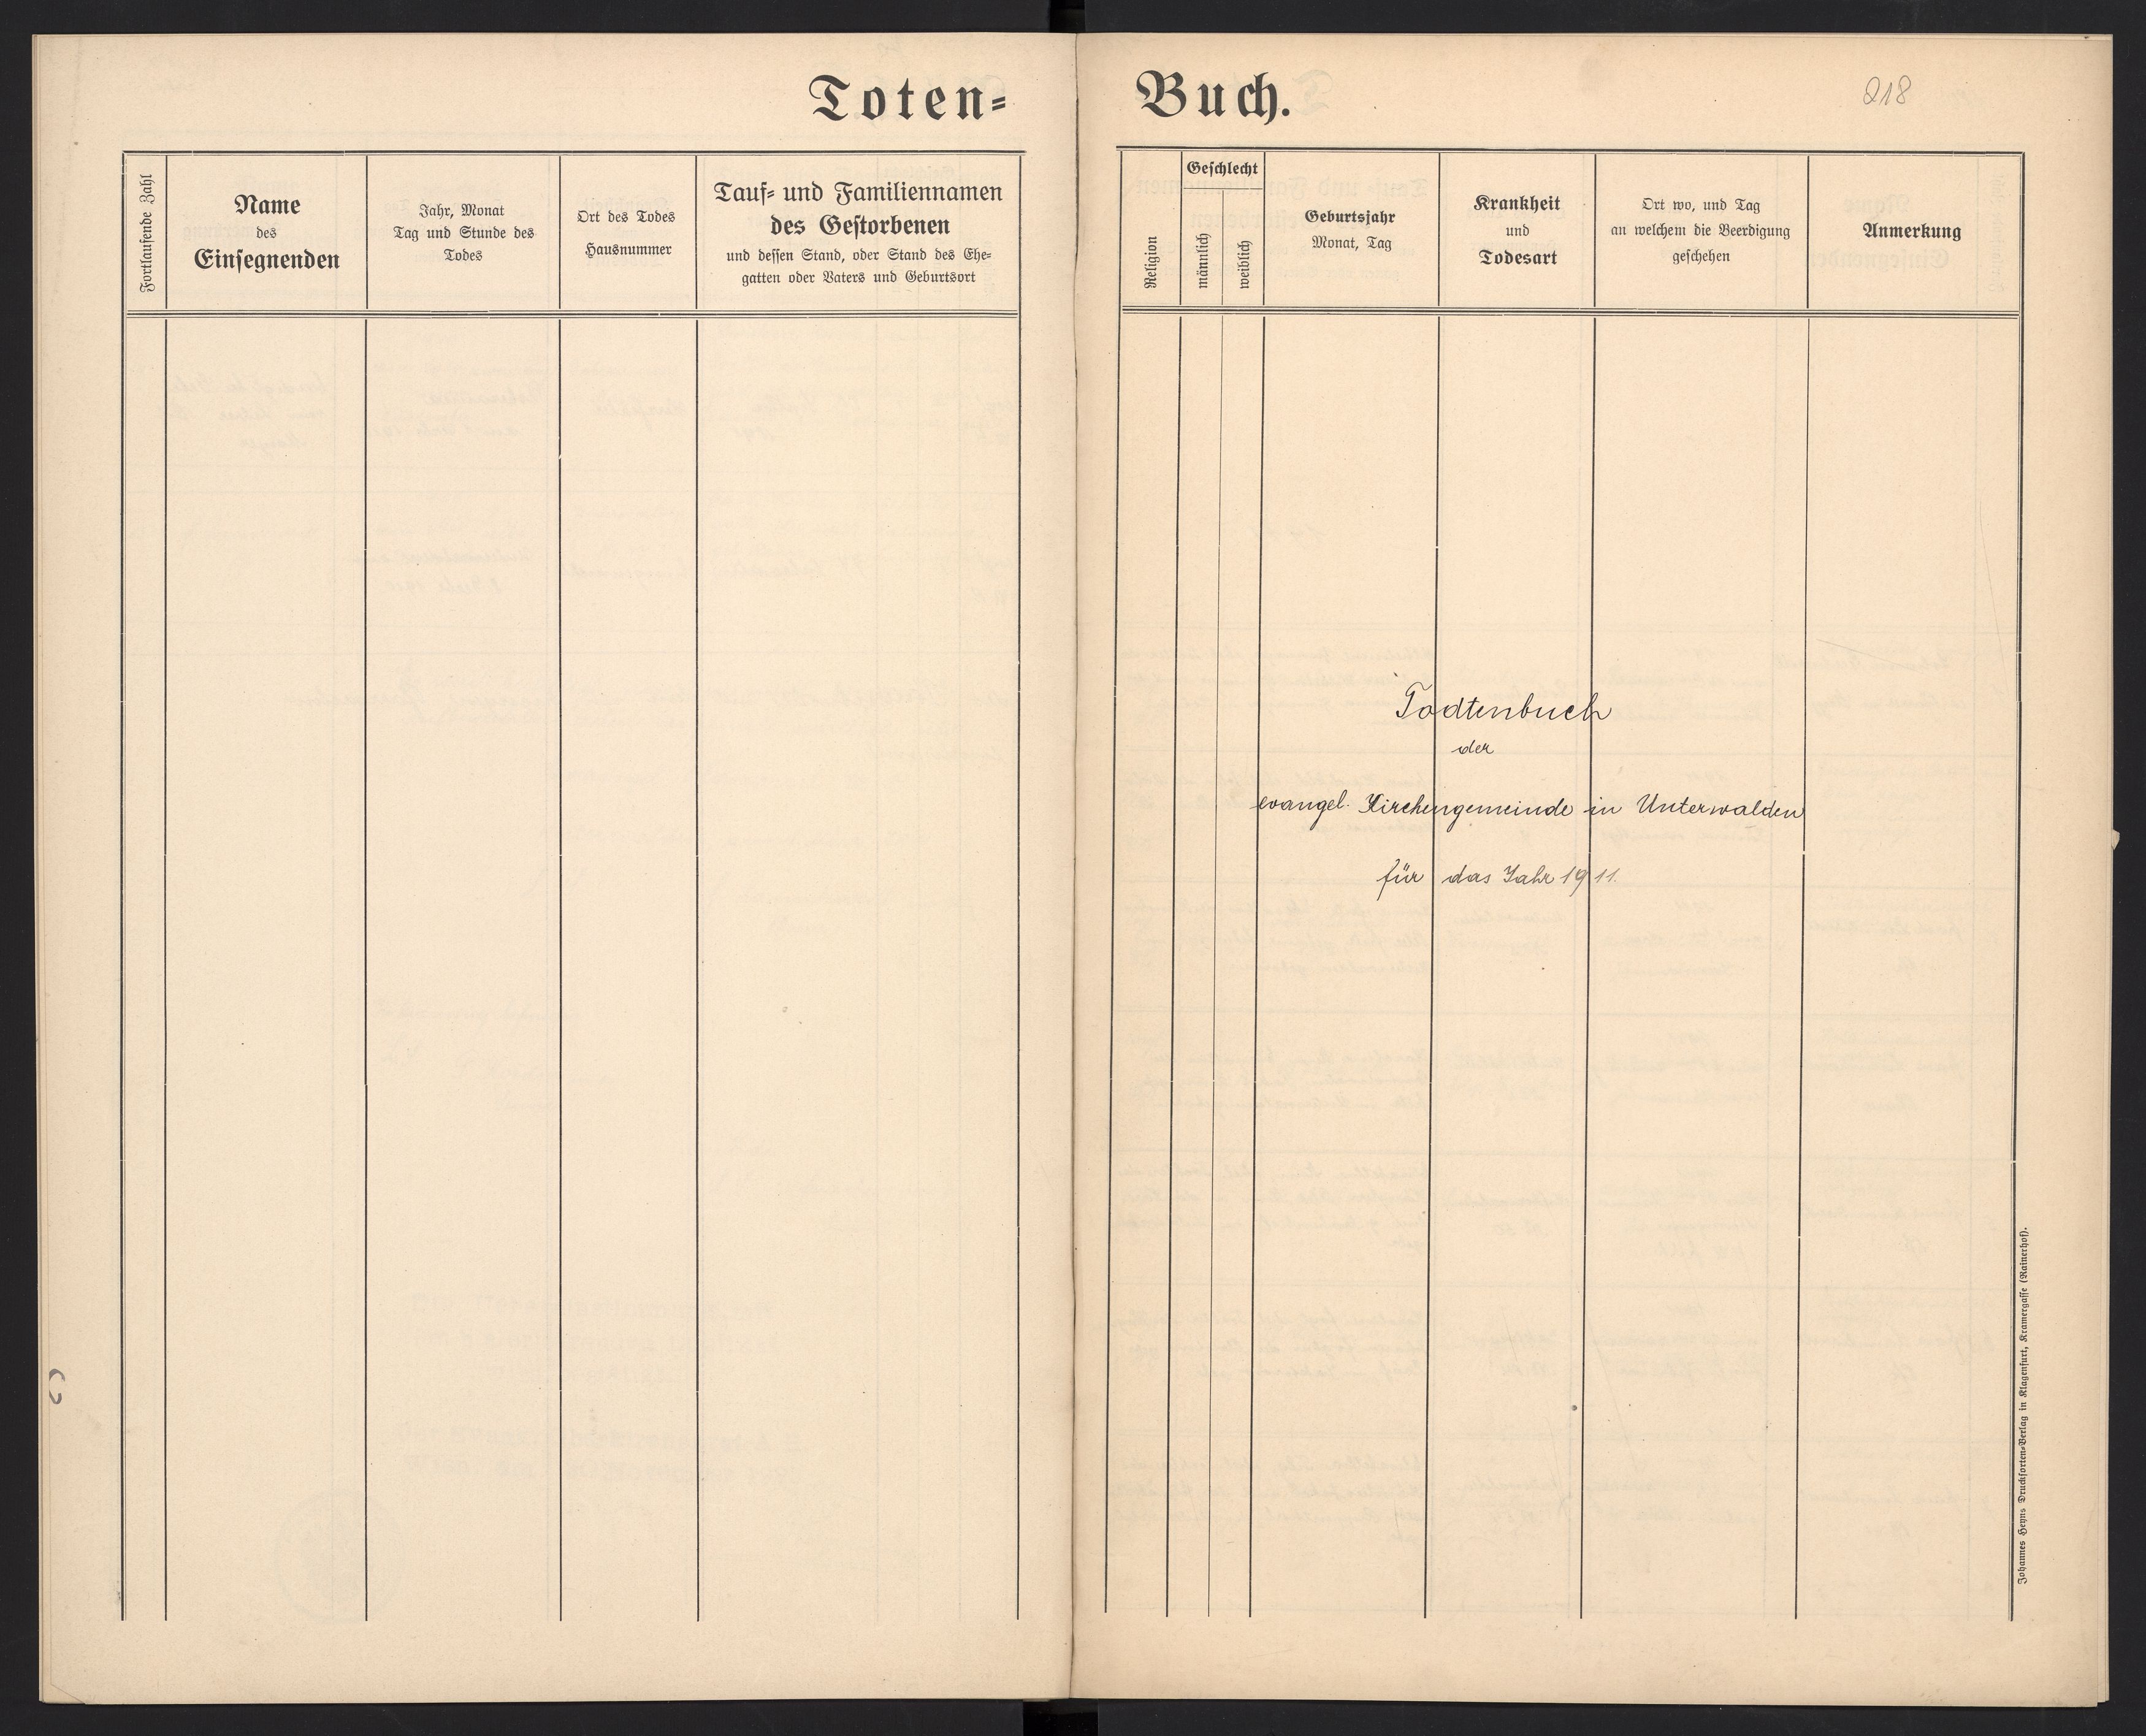 Toten=
Fortlaufende Zahl
Name
des
Einsegnenden
Jahr, Monat
Tag und Stunde des
Todes
Ort des Todes
Hausnummer
Tauf= und Familiennamen
des Gestorbenen
und dessen Stand, oder Stand des Ehe=
gatten oder Vaters und Geburtsort
Buch.
218
Religion
Geschlecht
männlich
weiblich
Geburtsjahr
Monat, Tag
Krankheit
und
Todesart
Ort wo, und Tag
an welchem die Beerdigung
geschehen
Anmerkung
Todtenbuch
der
evangel. Kirchengemeinde in Unterwalden
für das Jahr 1911.
Johannes Heyns Drucksorten=Verlag in Klagenfurt, Kramergasse (Rainerhof).